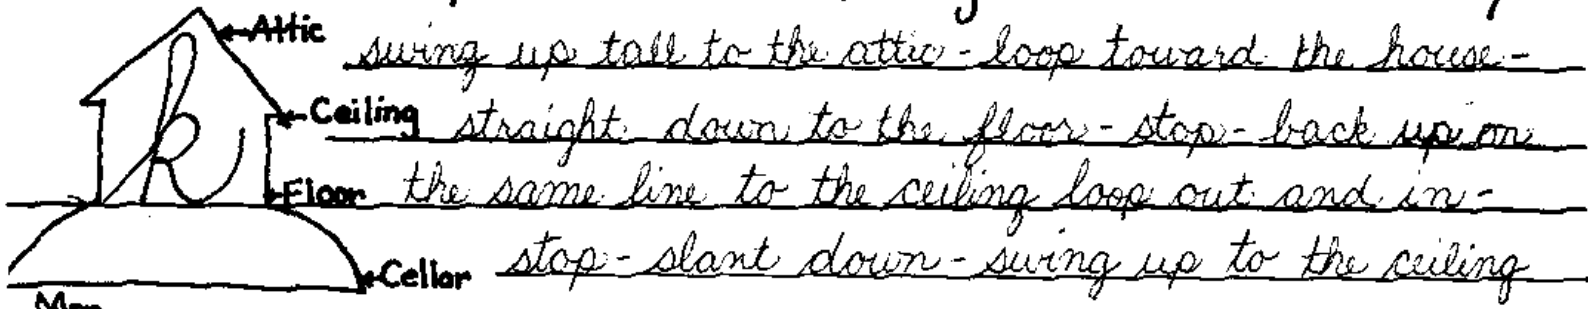 Attic swing up tall to the attic - loop toward the house -
Ceiling straight down to the floor - stop - back up on
k
Floor the same line to the ceiling loop out and in -
Cellar stop - slant down - swing up to the ceiling